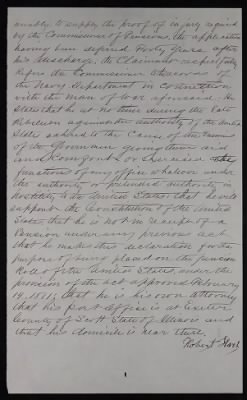 unable to supply the proof of injury required
by the Commissioner of Pensions, the application
having been defered Forty Years after
his discharge. The Claimant respectfully
Refers the Commissioner to the records of
the Navy Department in connection
with the Man of War aforesaid. He
States that he at no time during the late
Rebelion against the authority of the United
State adhered to the Cause of the Enemies
of the Government giving them aid
and Comfort, or Exercised the
functions of any office whatever under
the authority or pretended authority in
hostility to the United States that he will
support the Constitution of the United
States that he is not in receipt of a
Pension under any previous act
that he makes this declaration for the
purpose of being placed on the pension
Roll of the United States, under the
provision of the act approved February
14. 1871; that he is his own Attorney
that his Post Office is at Exeter
County of Scott State of Illinois and
that his domicile is near there.
Robert